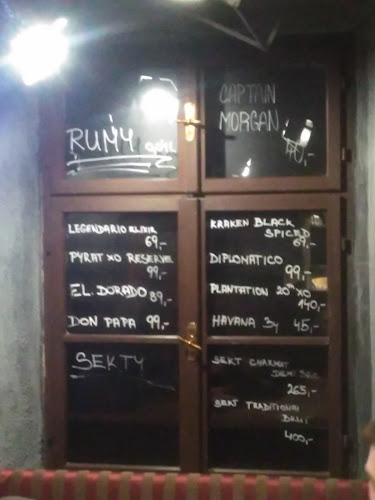 RUMY 0,04L
CAPTAIN
MORGAN
70,-
LEGENDARIO ELIXIR
69,-
PYRAT XO RESERVE
99,-
EL. DORADO 89,-
DON PAPA 99,-
KRAKEN BLACK
SPICED
69,-
DIPLOMATICO
99,-
PLANTATION 20TH XO
140,-
HAVANA 3y 45,-
SEKTY
SEKT CHARMAT
DEMI SEC
265,-
SEKT TRADITIONAL
DEMI
400,-